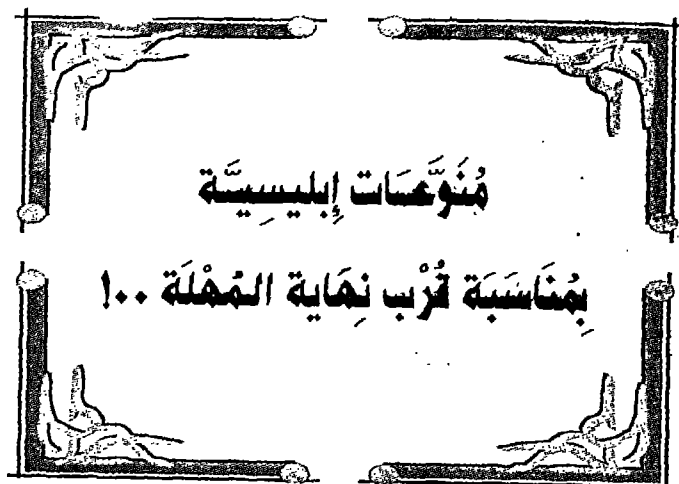 مُنَوَّعَات إِبليسِيَّة
بِمُنَاسَبَة قُرْب نِهَاية المُهْلَة ..!